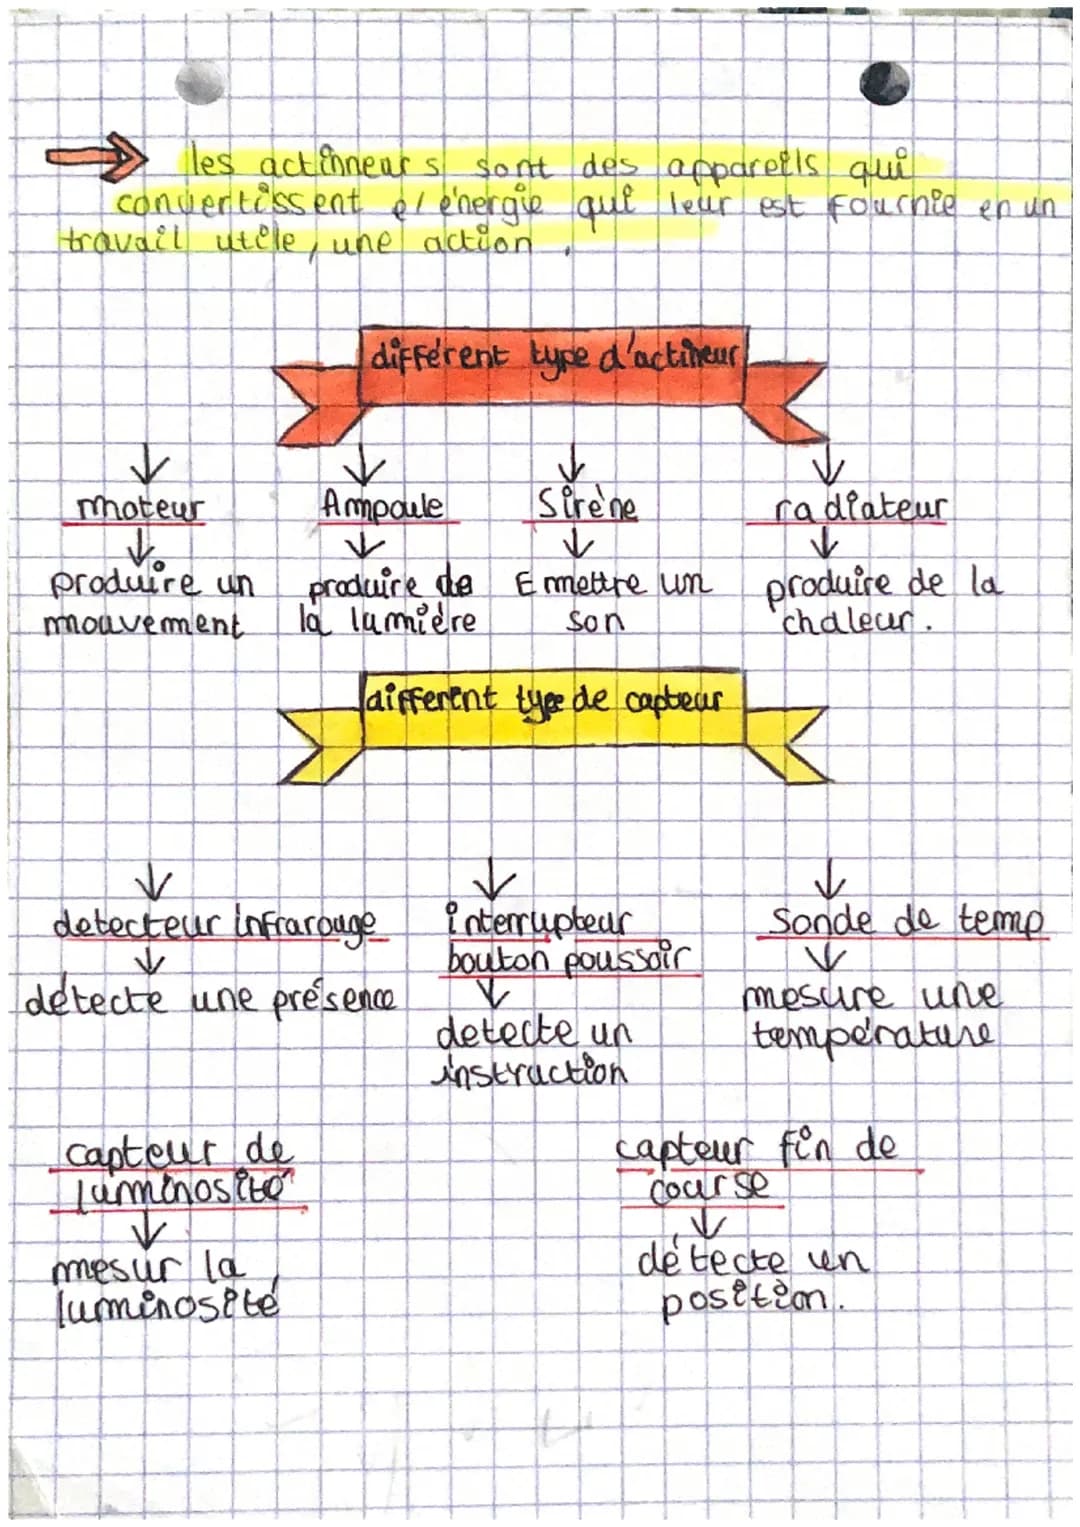 les actinneurs sont des appareils qui
convertissent l'énergie qui leur est fournie en un
travail utile, une action.
différent type d'actineur
moteur Ampoule Sirène radiateur
produire un produire de Emettre un produire de la
mouvement la lumière son chaleur.
different type de capteur
detecteur infrarouge interrupteur Sonde de temp
bouton poussoir
détecte une présence mesure une
detecte un température
instruction
capteur de capteur fin de
luminosité course
mesur la détecte un
luminosité position.